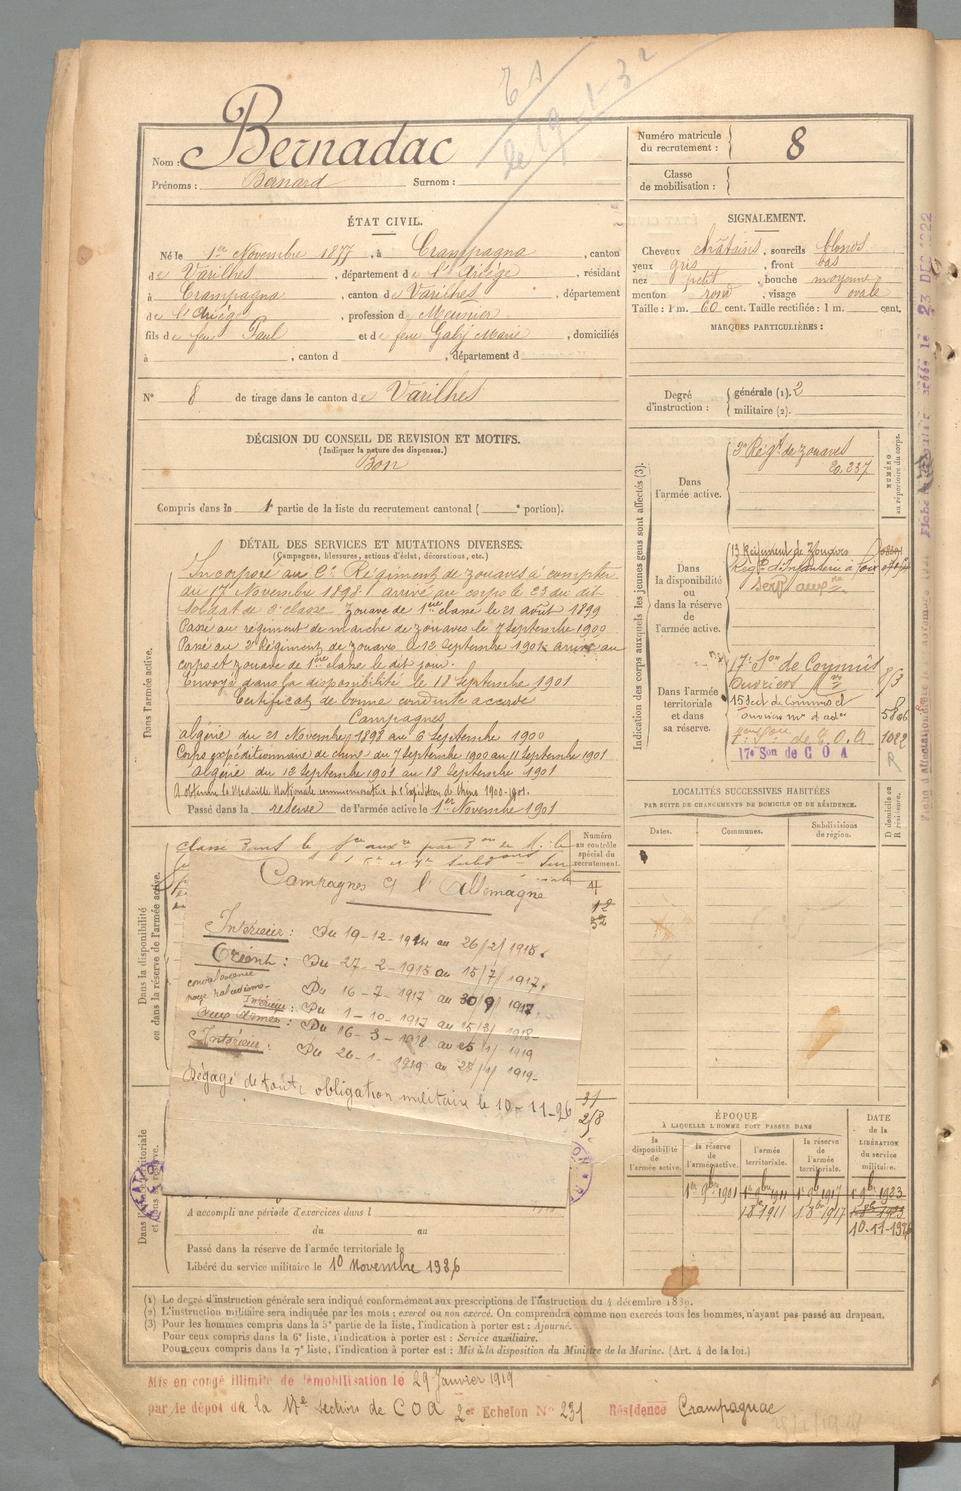 Nom : Bernadac
Prénoms : Bernard Surnom :
Numéro matricule du recrutement : 8
Classe de mobilisation :
ÉTAT CIVIL.
Né le 1er Novembre 1877, à Crampagna, canton
de Varilhes, département de l'Ariège, résidant
à Crampagna, canton de Varilhes, département
de l'Ariège, profession de Meunier
fils de feu Paul et de feue Gaby Marie, domiciliés
à , canton d , département d
N° 8 de tirage dans le canton de Varilhes
DÉCISION DU CONSEIL DE REVISION ET MOTIFS.
(Indiquer la nature des dispenses.)
Bon
Compris dans la 1 partie de la liste du recrutement cantonal ( e portion).
DÉTAIL DES SERVICES ET MUTATIONS DIVERSES.
(Campagnes, blessures, actions d'éclat, décorations, etc.)
Dans l'armée active.
Incorporé au Régiment de zouaves à compter
du 17 Novembre 1898. arrivé au corps le 23 du dit
soldat de 2e classe Zouave de 1ère classe le 21 août 1899
Passé au régiment de marche de zouaves le 7 septembre 1900
Passé au Régiment de zouaves le 12 Septembre 1901 arrivé au
corps et zouave de 1ère classe le dit jour.
Envoyé dans la disponibilité le 18 Septembre 1901
Certificat de bonne conduite accordé
Campagnes
Algérie du 21 Novembre 1898 au 6 Septembre 1900
Corps expéditionnaire de chine du 7 Septembre 1900 au 11 Septembre 1901
Algérie du 12 Septembre 1901 au 18 Septembre 1901
A obtenu la Médaille Nationale commémorative de l'Expédition de Chine 1900-1901.
Passé dans la réserve de l'armée active le 1er Novembre 1901
Dans la disponibilité ou dans la réserve de l'armée active.
Numéro au contrôle spécial du recrutement.
4
12
32
Campagnes c/ l'Allemagne
Intérieur : Du 19-12-1914 au 26/2/1915.
Orient : Du 27-2-1915 au 15/7/1917.
convalescence
Du 16-7-1917 au 30/9/1917
Intérieur : Du 1-10-1917 au 15/3/1918-
aux Armées : Du 16-3-1918 au 25/1/1919
Intérieur : Du 26-1-1919 au 28/1/1919-
Dégagé de toute obligation militaire le 10-11-26
31
2/8
A accompli une période d'exercices dans l
du au
Passé dans la réserve de l'armée territoriale le
Libéré du service militaire le 10 Novembre 1926
SIGNALEMENT.
Cheveux châtains, sourcils blonds
yeux gris, front bas
nez petit, bouche moyenne
menton rond, visage ovale
Taille : 1 m. 60 cent. Taille rectifiée : 1 m. cent.
MARQUES PARTICULIÈRES :
Degré d'instruction : générale (1). 2
militaire (2).
Indication des corps auxquels les jeunes gens sont affectés (3).
NUMÉRO au répertoire du corps.
Dans l'armée active.
3e Régt de zouaves
20.237
Dans la disponibilité ou dans la réserve de l'armée active.
13 Régiment de Zouaves
Régt d'infanterie à Foix
Serv. auxre
Dans l'armée territoriale et dans sa réserve.
17e Son de Commis
Ouvriers
15 Sect de Commis et
ouvriers mre d'adon
17e Son de C O A
LOCALITÉS SUCCESSIVES HABITÉES
PAR SUITE DE CHANGEMENTS DE DOMICILE OU DE RÉSIDENCE.
Dates. Communes. Subdivisions de région.
D domicile ou R résidence.
ÉPOQUE
À LAQUELLE L'HOMME DOIT PASSER DANS
la disponibilité de l'armée active.
la réserve de l'armée active.
l'armée territoriale.
la réserve de l'armée territoriale.
DATE de la LIBÉRATION du service militaire.
1er 9bre 1901 1er 9bre 1911 1er 9bre 1917 1er 9bre 1923
1 8bre 1911 1 8bre 1917 1 8bre 1923
10-11-1926
(1) Le degré d'instruction générale sera indiqué conformément aux prescriptions de l'instruction du 4 décembre 1889.
(2) L'instruction militaire sera indiquée par les mots : exercé ou non exercé. On comprendra comme non exercés tous les hommes, n'ayant pas passé au drapeau.
(3) Pour les hommes compris dans la 5e partie de la liste, l'indication à porter est : Ajourné.
Pour ceux compris dans la 6e liste, l'indication à porter est : Service auxiliaire.
Pour ceux compris dans la 7e liste, l'indication à porter est : Mis à la disposition du Ministre de la Marine. (Art. 4 de la loi.)
Mis en congé illimité de démobilisation le 29 Janvier 1919
par le dépôt de la 17e section de COA 2er Echelon N° 231 Résidence Crampagnac